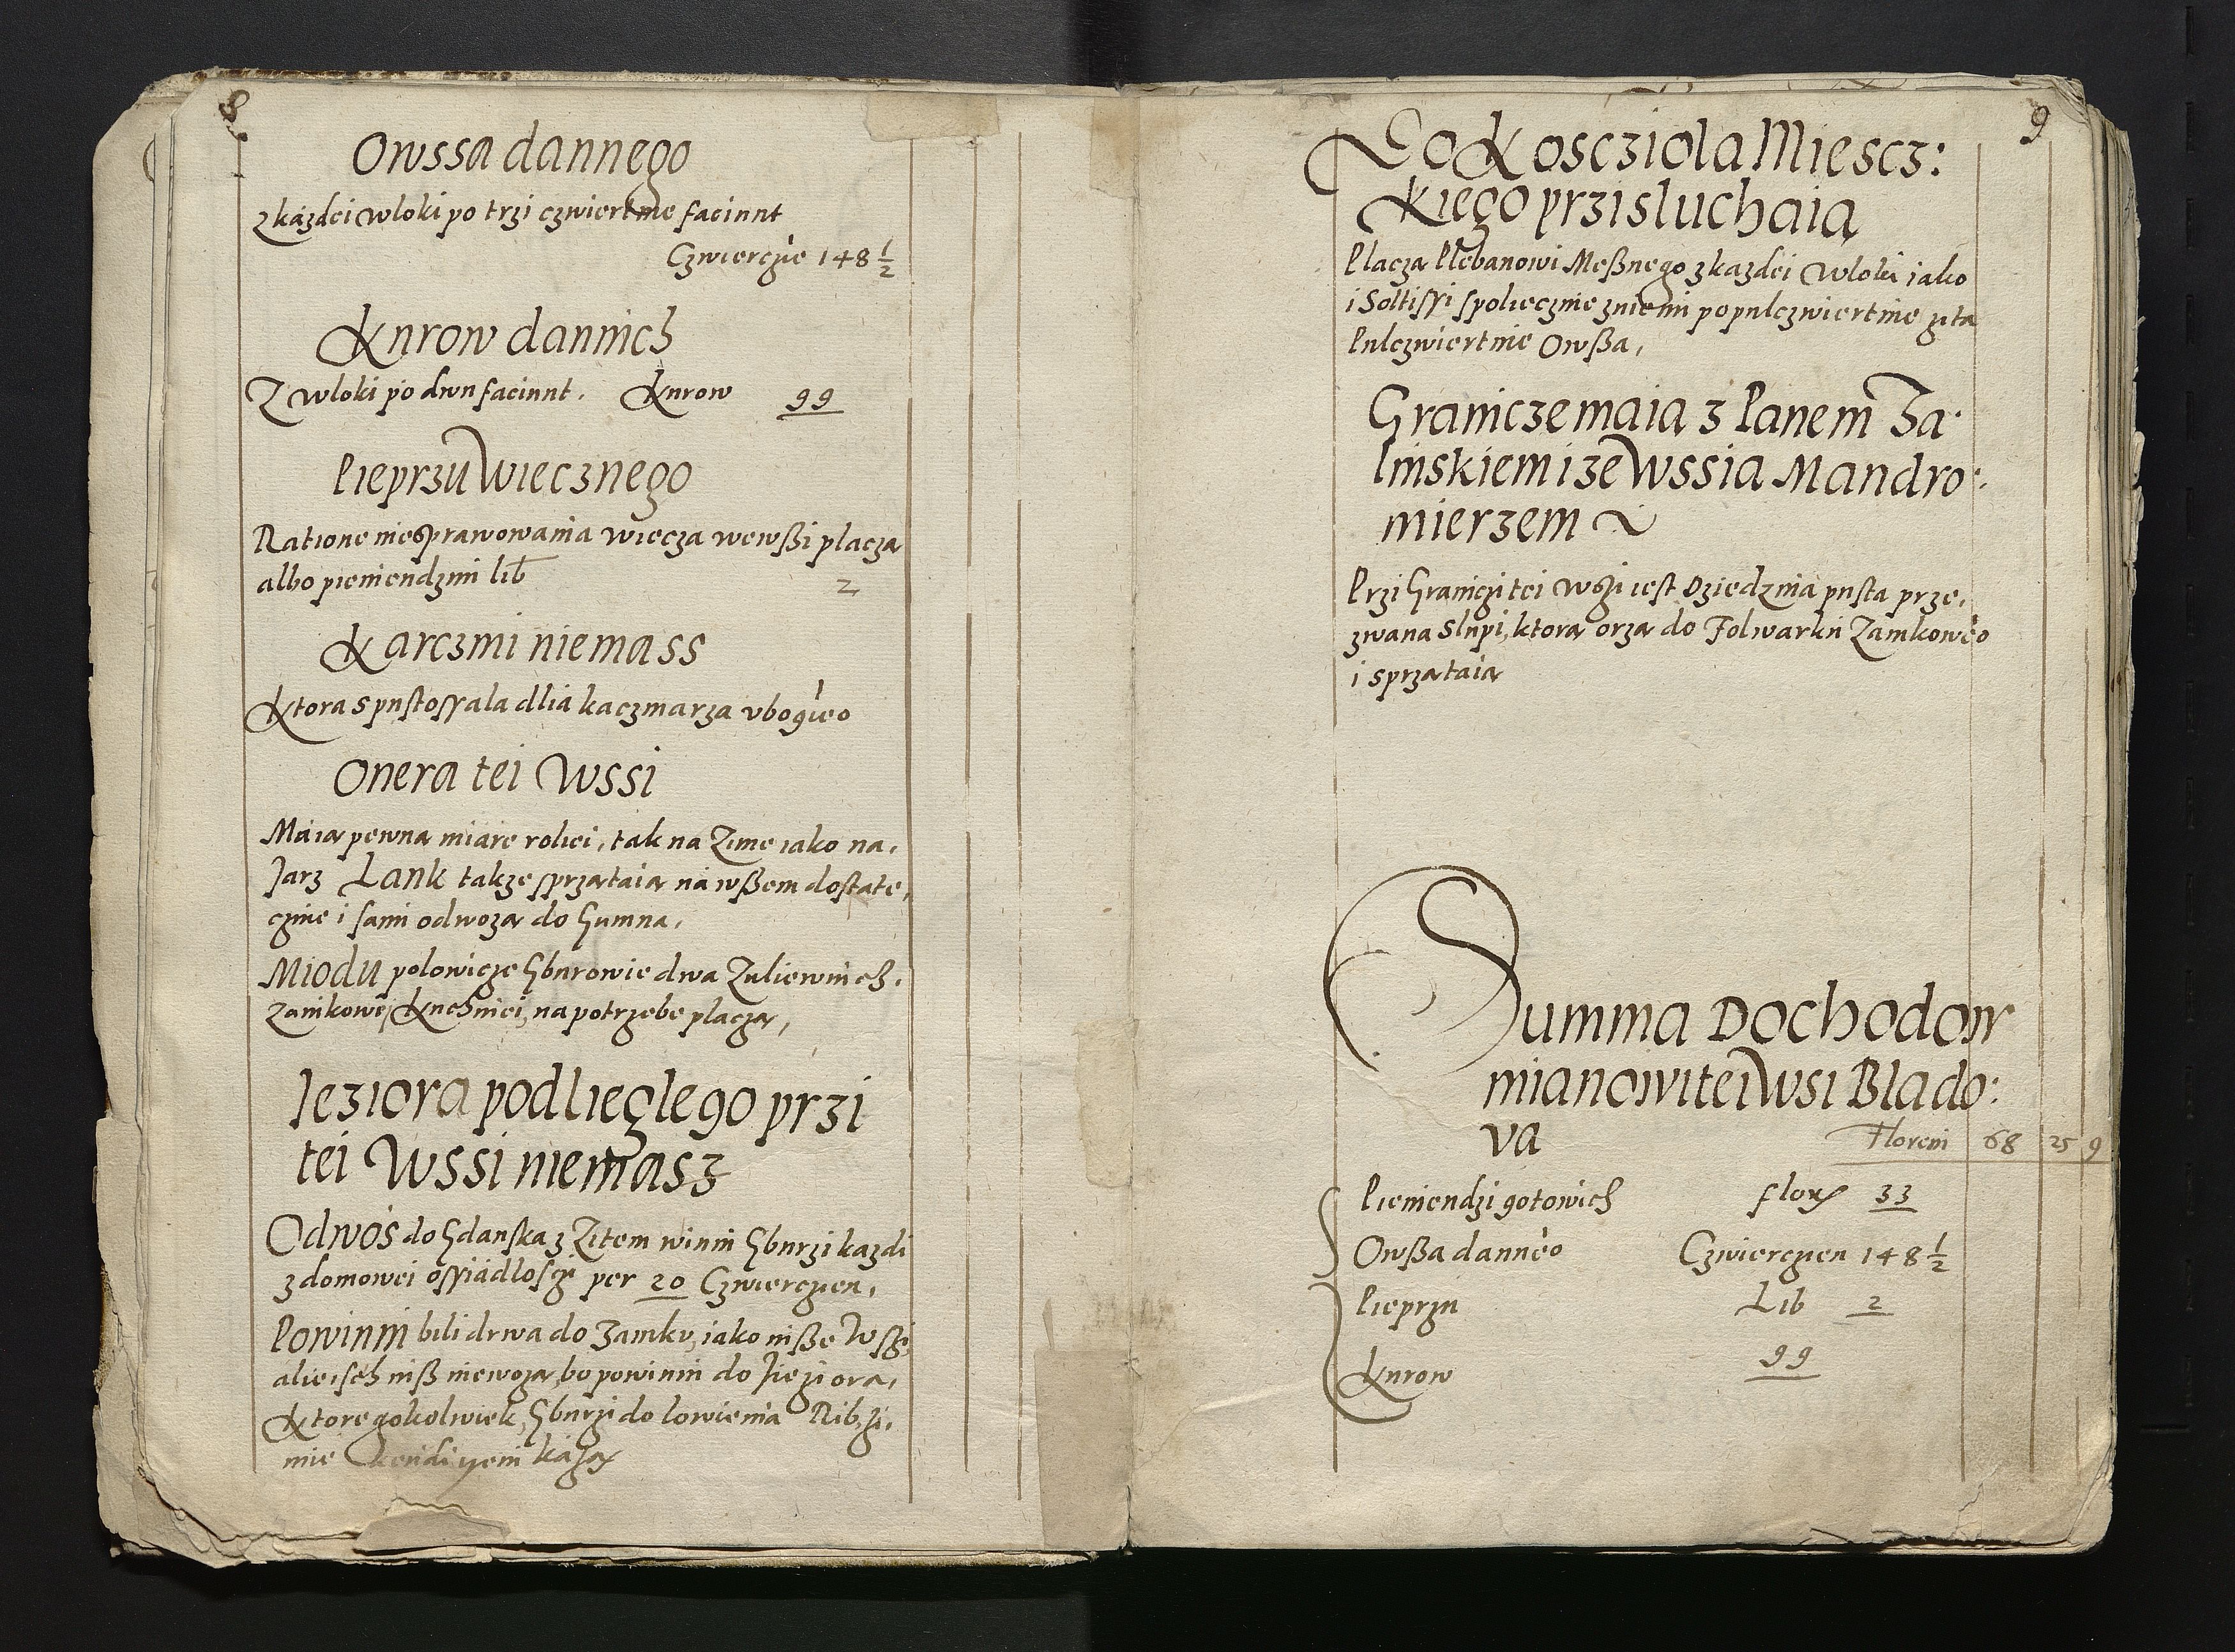 8
Owssa dannego
z kazdei wloki po trzi czwiertnie faciunt
Czwierczie 148 1/2
Kurow dannich
Z wloki po dwu faciunt. Kurow 99
Pieprzu Wiecznego
Ratione niesprawowania wiecza wewßi placza
albo pieniendzmi lib 2
Karczmi niemass
Ktora spustossala dlia kaczmarza vbogieo
Onera tei Wssi
Maia pewna miare roliei, tak na Zime iako na,
Jarz Lank takze sprzataia na wßem dostate,
cznie i sami odwoza do Gumna,
Miodu polowicze Gburowie dwa Zuliewnich,
Zamkowei Kuchniei, na potrzebe placza,
Jeziora podlieglego przi
tei Wssi niemasz
Odwos do Gdanska z Zitem winni Gburzi kazdi
z domowei ossiadlosczi per 20 Czwierczien,
Powinni bili drwa do Zamku, iako insße Wsßi,
alie, sch niß niewoza, bo powinni do Jieziora,
Ktoregokolwiek, Gburzi do lowienia Rib, zi,
mie kendi yem kaza
9
Do Kosczioła Miescz:
Kiego przisluchaia
Placza Plebanowi Meßnego z kazdei Wloki iako
i Soltissi spoliecznie zniemi po pulczwiertnie zita
Pulczwiertnie Owßa,
Granicze maia z Panem Za:
linskiem i ze Wssia Mandro:
mierzem
Przi Graniczi tei Wßi iest Dziedzina pusta prze,
zwana Slupi, ktora orza do Folwarku Zamkoweo
i sprzataia
Summa Dochodow
mianowitei Wsi Blado:
va
Floreni 68 25 9
Pieniendzi gotowich flor 33
Owßa danneo Czwierczien 148 1/2
Pieprzu Lib 2
Kurow 99